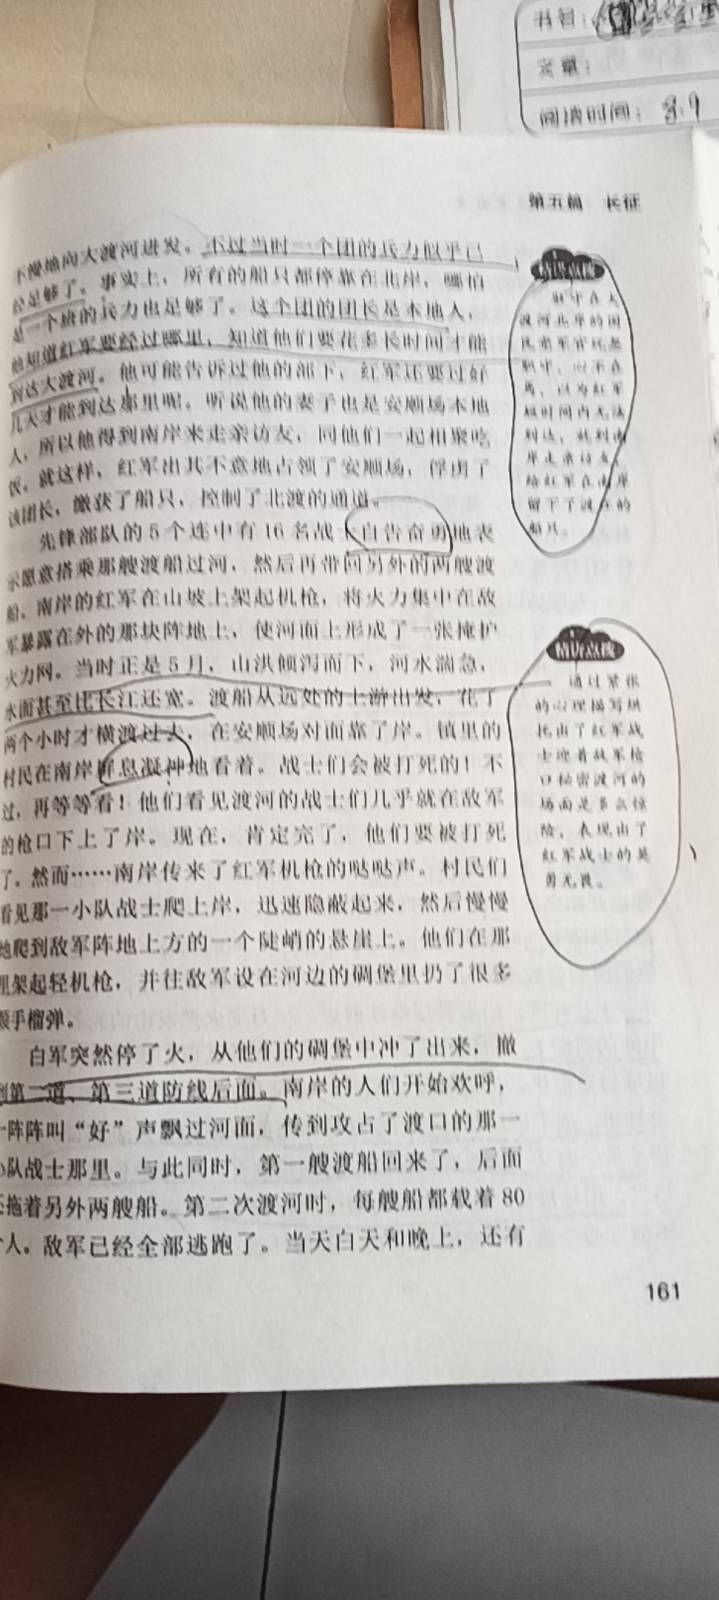 书名：
文章：
阅读时间：8.9
第五篇 长征
不慢地向大渡河进发。不过当时一个团的兵力似乎已
经足够了。事实上，所有的船只都停靠在北岸，哪怕
是一个班的兵力也足够了。这个团的团长是本地人，
他知道红军要经过哪里，知道他们要花多长时间才能
到达大渡河。他可能告诉过他的部下，红军还要过好
几天才能到达那里呢。听说他的妻子也是安顺场本地
人，所以他得到南岸来走亲访友，同他们一起相聚吃
饭。就这样，红军出其不意地占领了安顺场，俘虏了
该团长，缴获了船只，控制了北渡的通道。
先锋部队的5个连中有16名战士自告奋勇地表
示愿意搭乘那艘渡船过河，然后再带回另外的两艘渡
船。南岸的红军在山坡上架起机枪，将火力集中在敌
军暴露在外的那块阵地上，使河面上形成了一张掩护
火力网。当时正是5月，山洪倾泻而下，河水湍急，
水面甚至比长江还宽。渡船从远处的上游出发，花了
两个小时才横渡过去，在安顺场对面靠了岸。镇里的
村民在南岸屏息凝神地看着。战士们会被打死的！不
过，再等等看！他们看见渡河的战士们几乎就在敌军
的枪口下上了岸。现在，肯定完了，他们要被打死
了。然而……南岸传来了红军机枪的哒哒声。村民们
看见那一小队战士爬上岸，迅速隐蔽起来，然后慢慢
地爬到敌军阵地上方的一个陡峭的悬崖上。他们在那
里架起轻机枪，并往敌军设在河边的碉堡里扔了很多
颗手榴弹。
白军突然停了火，从他们的碉堡中冲了出来，撤
到第二道、第三道防线后面。南岸的人们开始欢呼，
一阵阵叫“好”声飘过河面，传到攻占了渡口的那一
小队战士那里。与此同时，第一艘渡船回来了，后面
还拖着另外两艘船。第二次渡河时，每艘船都载着80
个人。敌军已经全部逃跑了。当天白天和晚上，还有
精讲点拨
驻守在大
渡河北岸的国
民党军官玩忽
职守，心不在
焉，以为红军
短时间内无法
到达，就到南
岸走亲访友，
给红军在南岸
留下了渡河的
船只。
精讲点拨
通过紧张
的心理描写烘
托出了红军战
士迎着敌军枪
口秘密渡河的
场面是多么惊
险，表现出了
红军战士的英
勇无畏。
161